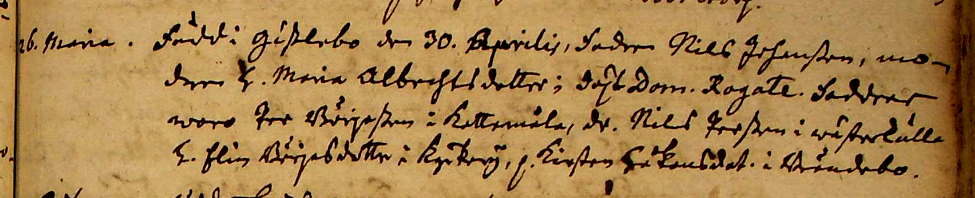 26. Maria. Född i Gislebo den 30. Aprilis, Fadren Nils Johansson, mo-
dren h. Maria Albrechtsdotter; döpt Dom. Rogate. Faddrar
woro Per Börjesson i Kattemåla, dr. Nils Persson i wästerkulla
h. Elin Börjesdotter i p. Kirsten Håkansdot. i Bröndebo.